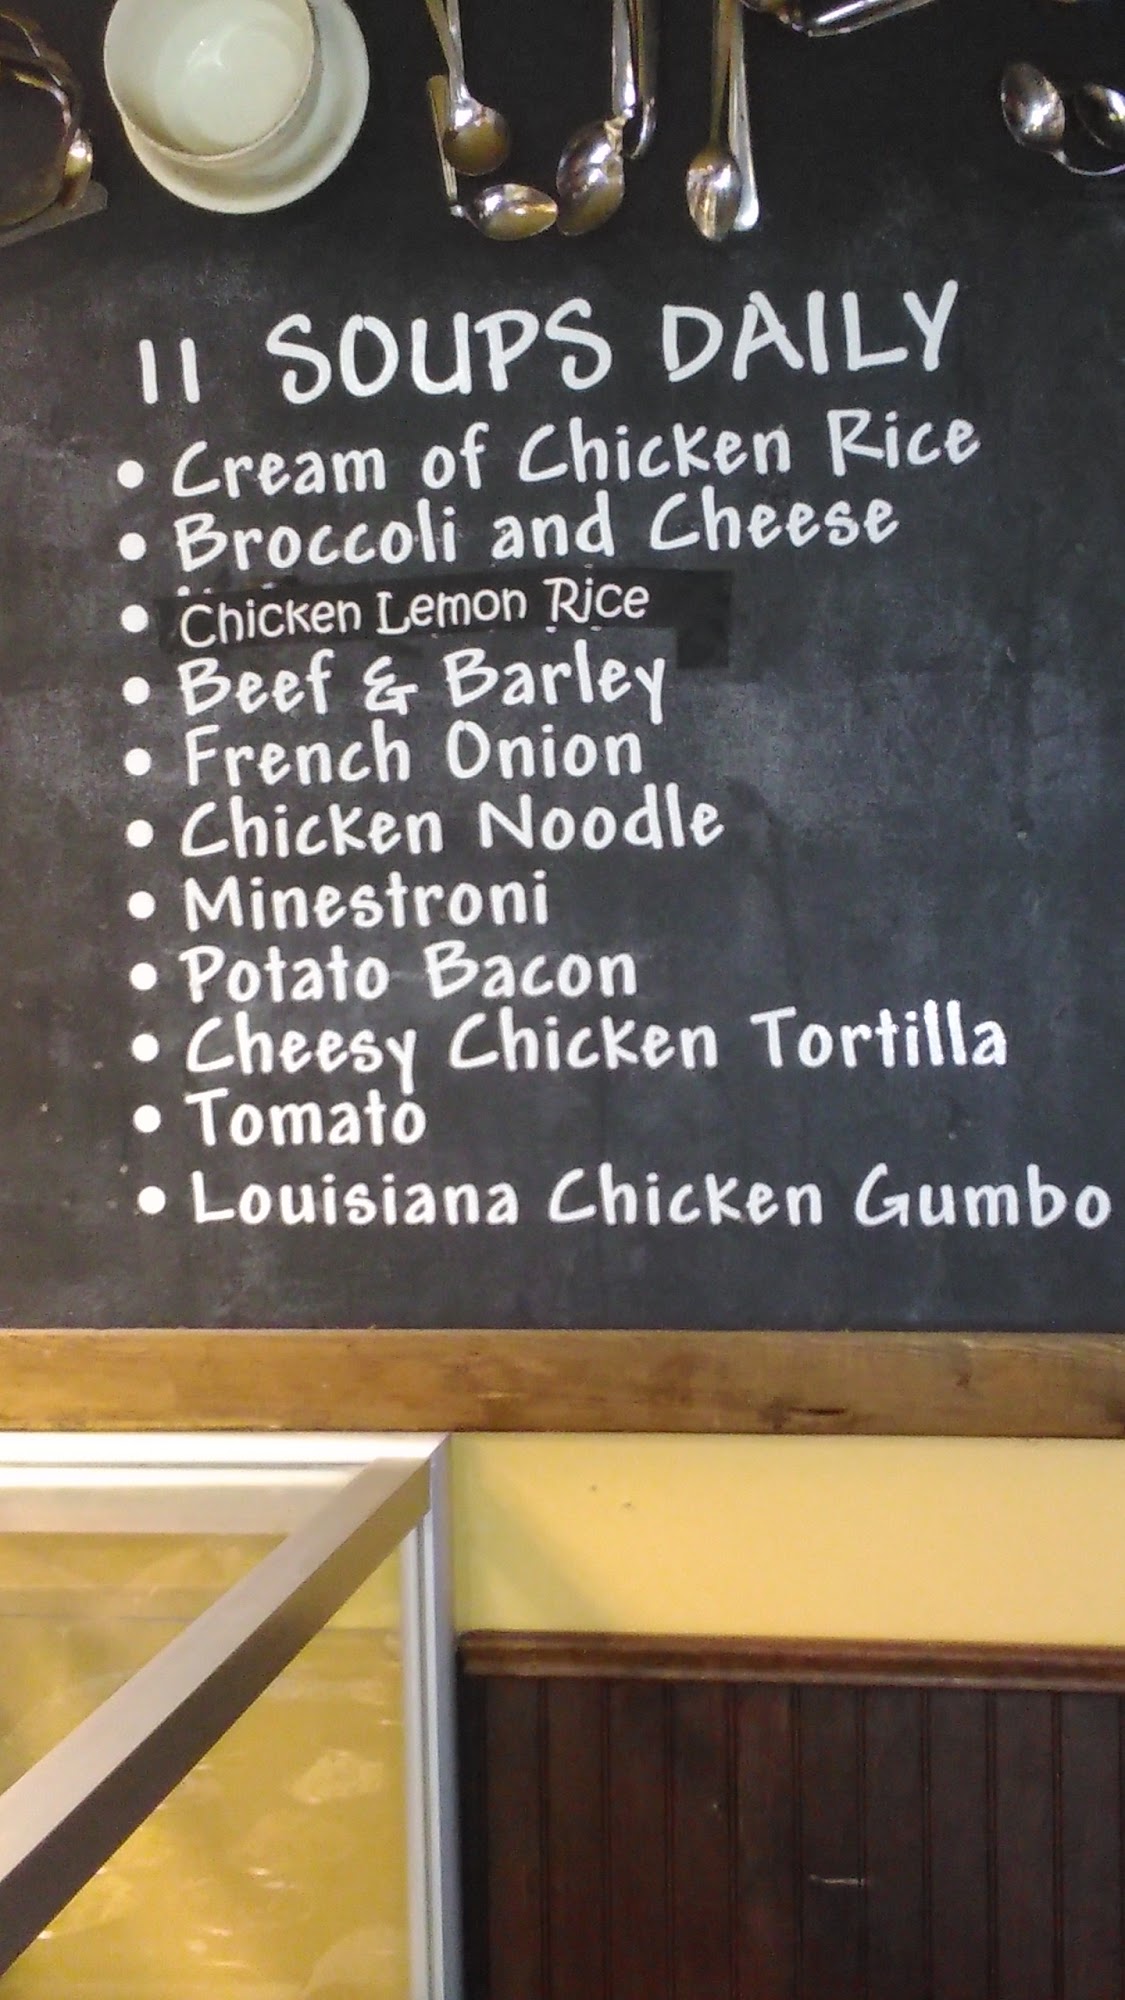 11 SOUPS DAILY
• Cream of Chicken Rice
• Broccoli and Cheese
• Chicken Lemon Rice
• Beef & Barley
• French Onion
• Chicken Noodle
• Minestroni
• Potato Bacon
• Cheesy Chicken Tortilla
• Tomato
• Louisiana Chicken Gumbo